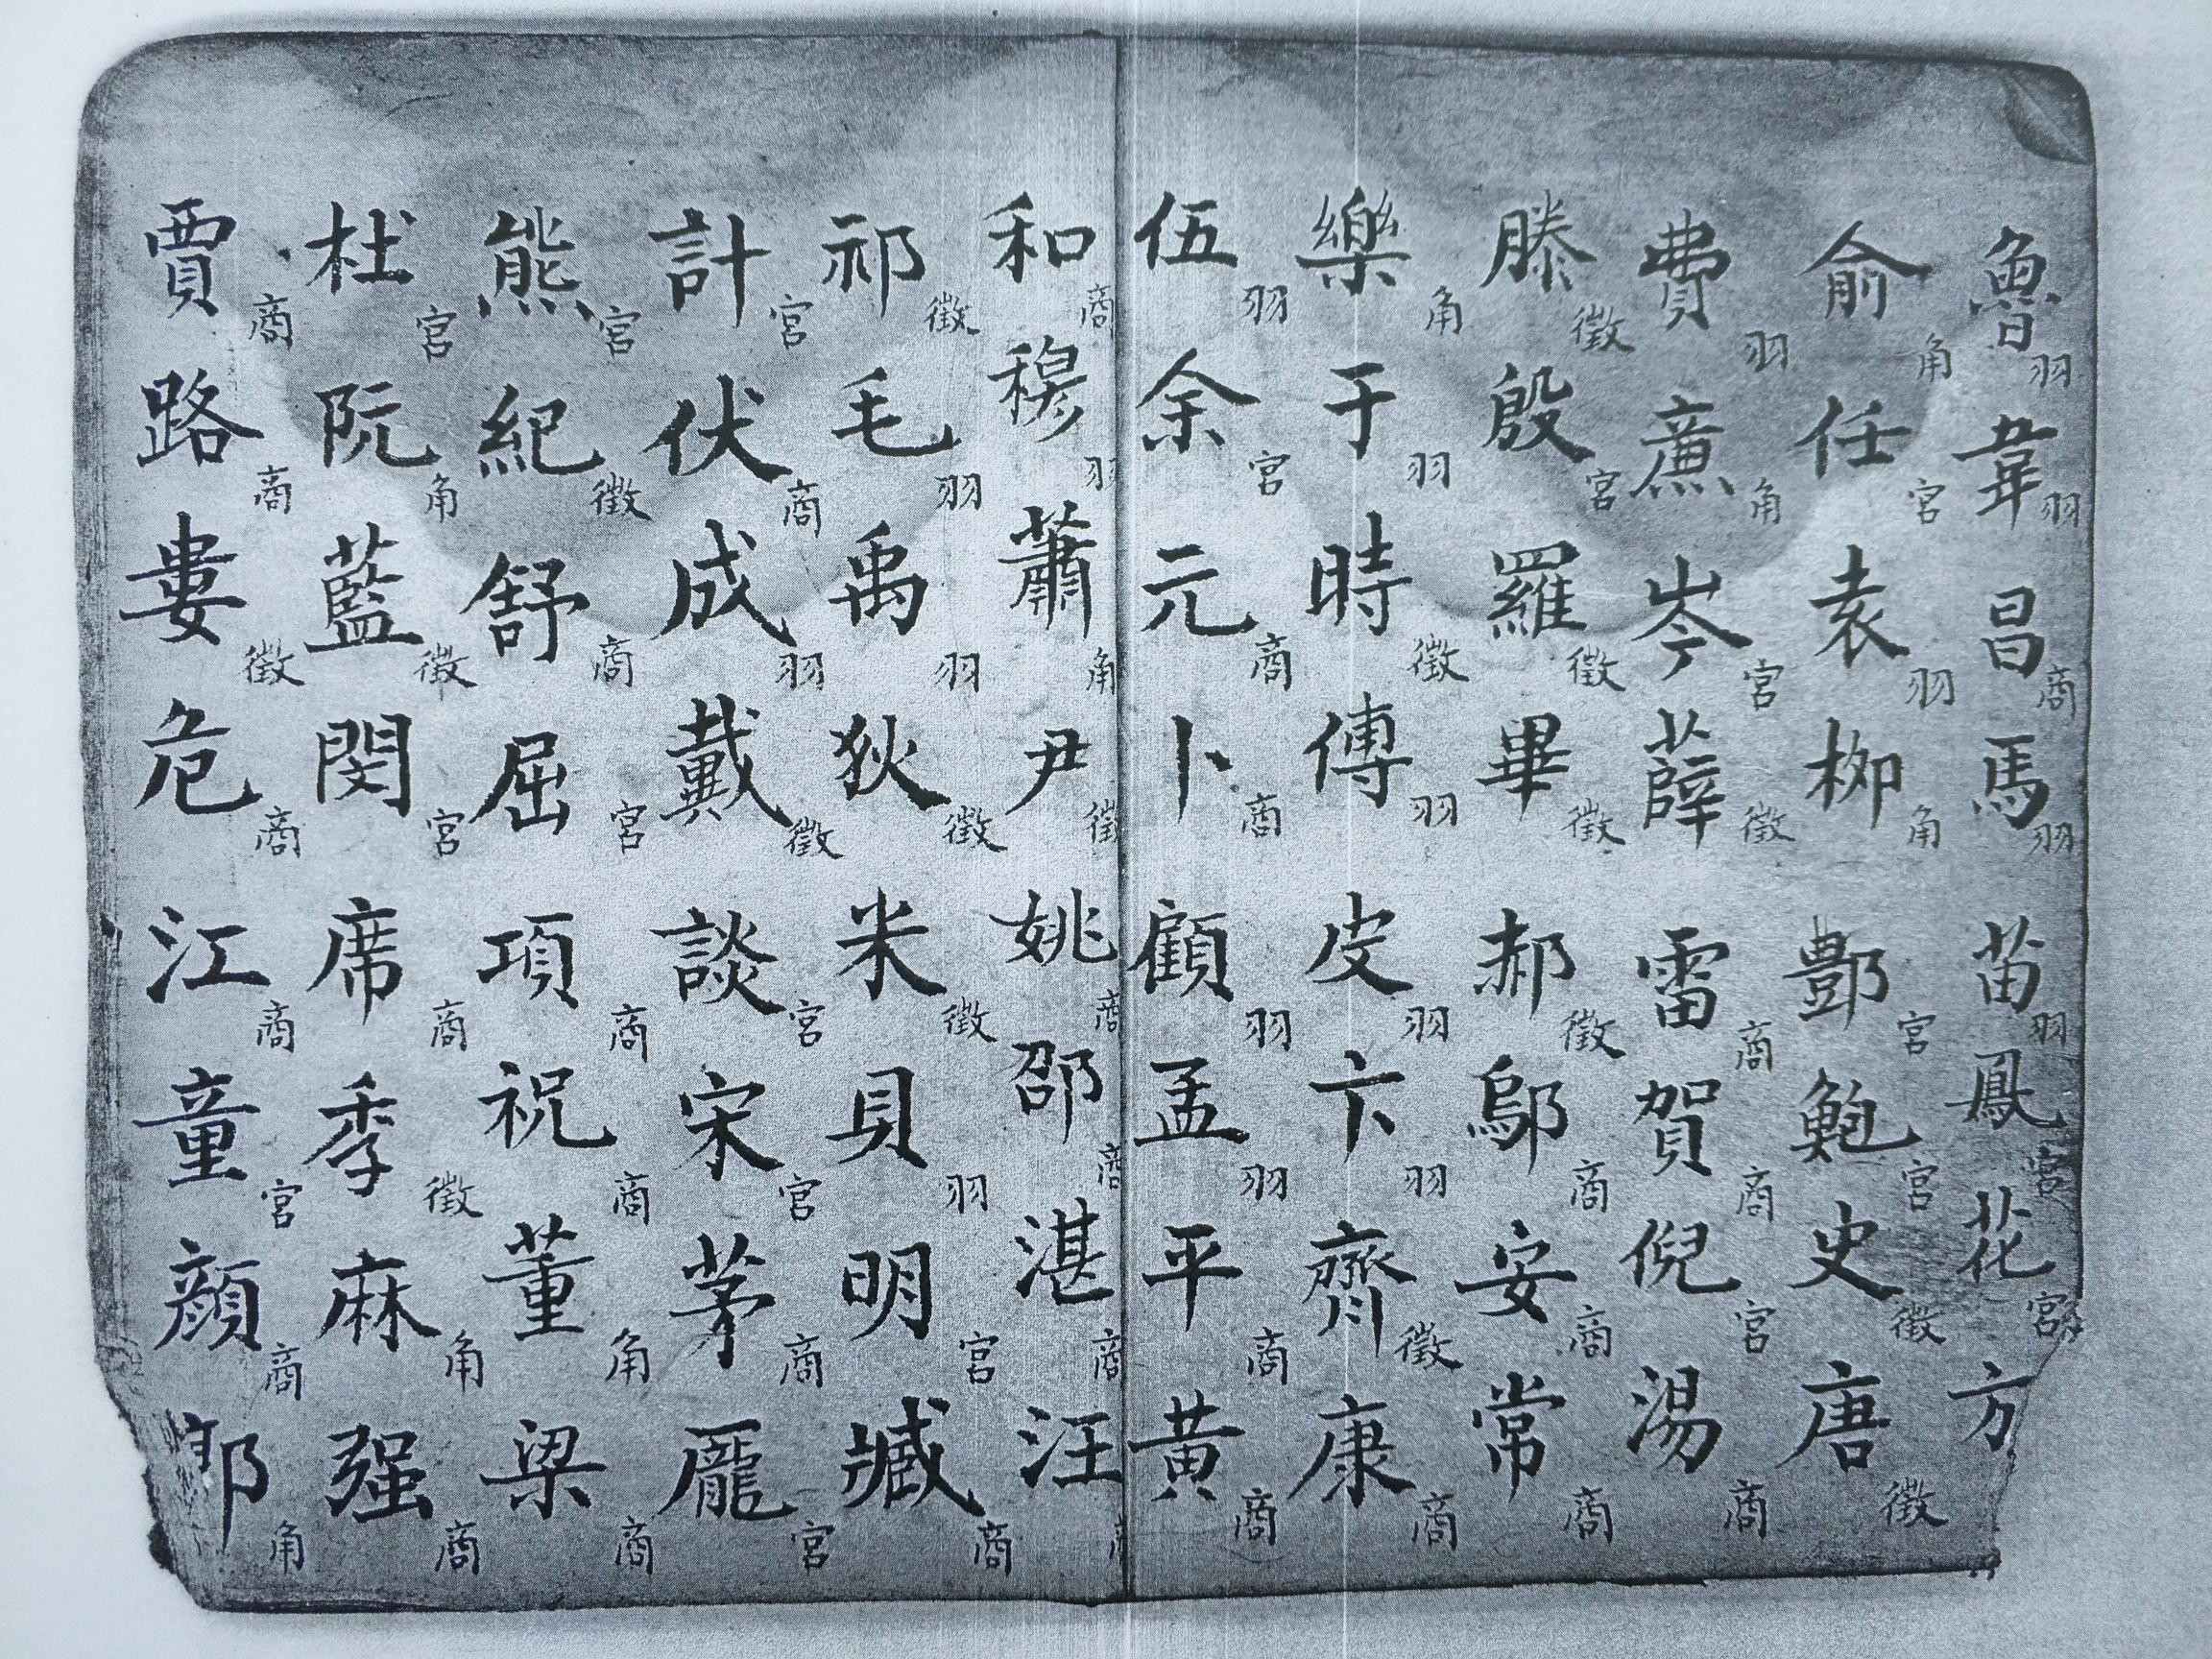 魯羽韋羽昌商馬羽苗羽鳳宮花宮方
俞角任宮袁羽柳角酆宮鮑宮史徵唐徵
費羽廉角岑宮薛徵雷商賀商倪宮湯商
滕徵殷宮羅徵畢徵郝徵鄔商安商常商
樂角于羽時徵傅羽皮羽卞羽齊徵康商
伍羽余宮元商卜商顧羽孟羽平商黃商
和商穆羽蕭角尹徵姚商邵商湛商汪
祁徵毛羽禹羽狄徵米徵貝羽明宮臧商
計宮伏商成羽戴徵談宮宋宮茅商龐宮
熊宮紀徵舒商屈宮項商祝商董角梁商
杜宮阮角藍徵閔宮席商季徵麻角强商
賈商路商婁徵危商江商童宮顏商郭角